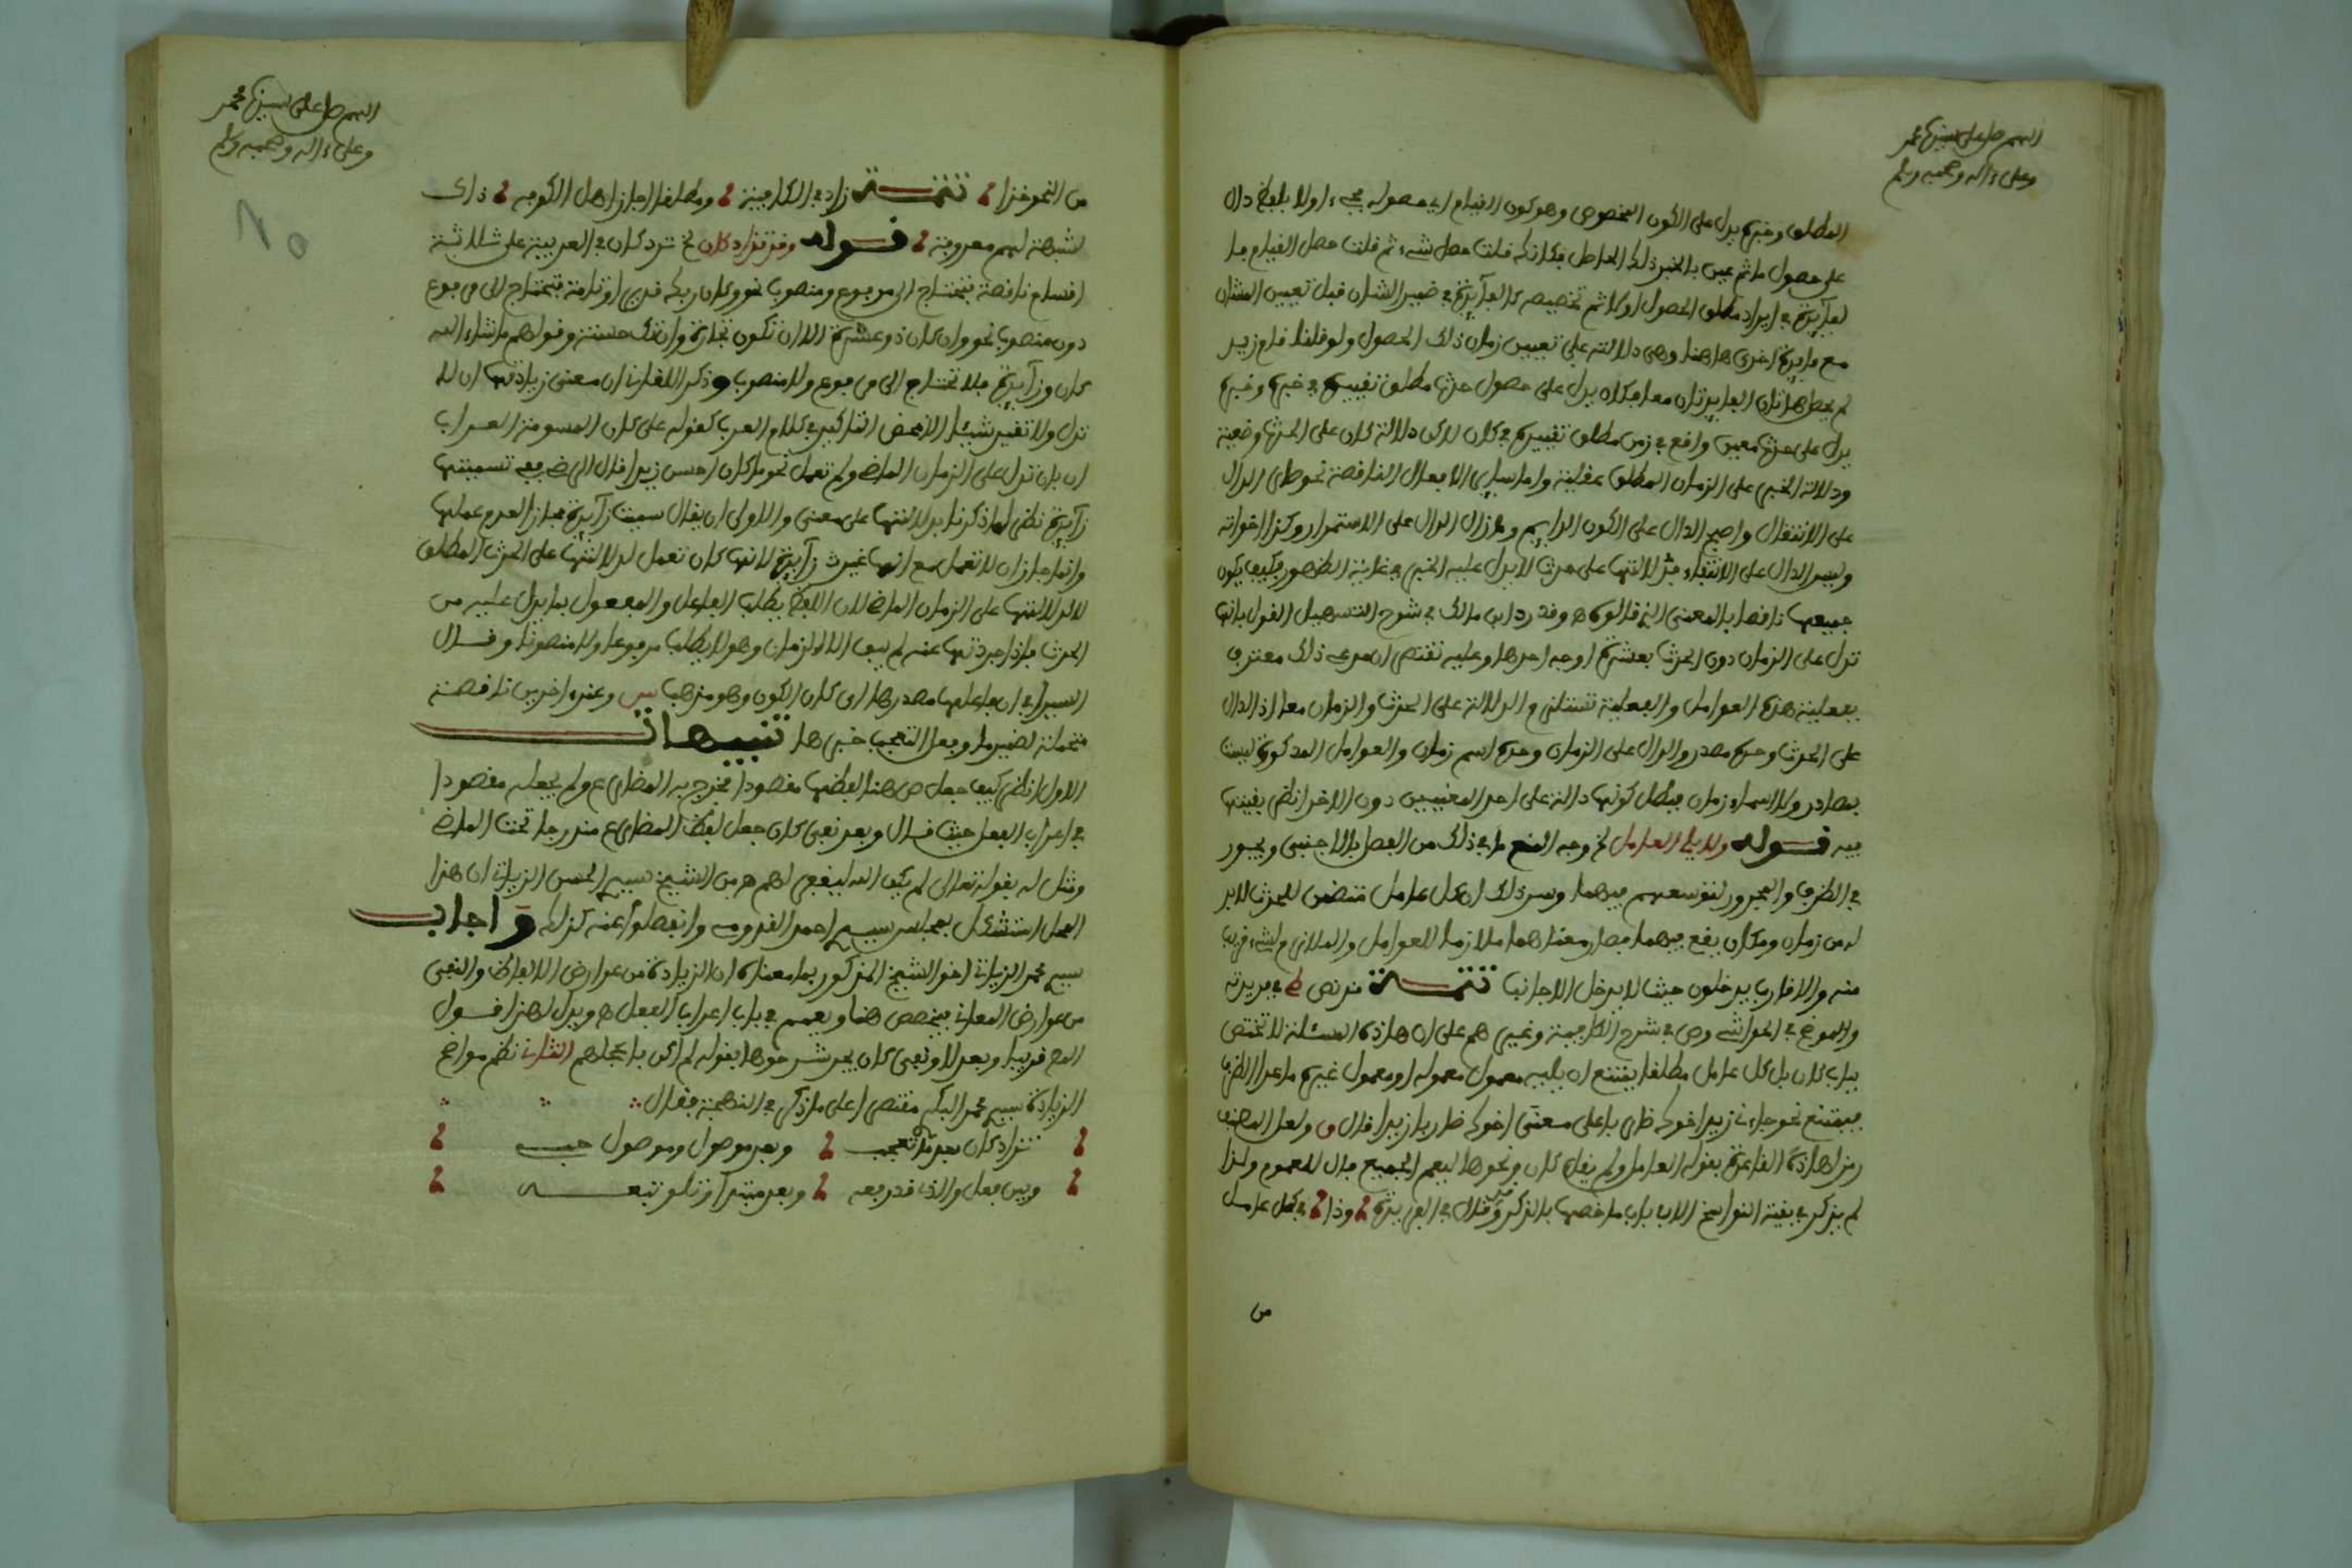 اللهم صل على سيدنا محمد
وعلى ءاله وصحبه وسلم
المطلق وخبره يدل على الكون المخصوص وهو كون القيام اي حصوله فجيء اولا بلفظ دال
على حصول ما ثم عين بالخبر ذلك الحاصل فكانك قلت حصل شيء ثم قلت حصل القيام فا
لفائدة في ايراد مطلق الحصول اولا ثم تخصيصه كالفائدة في ضمير الشان قبل تعيين الشان
مع فائدة اخرى هاهنا وهي دلالته على تعيين زمان ذلك الحصول ولو قلنا قام زيد
لم يحصل هاتان الفائدتان معا فكان يدل على حصول حدث مطلق تقييده في خبره وخبره
يدل على حدث معين واقع في زمن مطلق تقييده في كان لاكن دلالة كان على الحدث وضعية
ودلالة الخبر على الزمان المطلق عقلية واما سائر الافعال الناقصة نحو صار الدال
على الانتقال واصبح الدال على الكون الدايم وما زال الدال على الاستمرار وكذا اخواته
وليس الدال على الانتفاء فدلالتها على حدث لا يدل عليه الخبر في غاية الظهور فكيف يكون
جميعها ناقصا بالمعنى الذي قالوه وقد رد ابن مالك في شرح التسهيل القول بانها
تدل على الزمان دون الحدث بعشرة اوجه احدها وعليه نقتصر ان مدعي ذلك معترف
بفعلية هذه العوامل والفعلية تستلزم الدلالة على الحدث والزمان معا اذ الدال
على الحدث وحده مصدر والدال على الزمان وحده اسم زمان والعوامل المذكورة ليست
بمصادر ولا اسماء زمان فبطل كونها دالة على احد المعنيين دون الاخر انظر بقيتها
فيه قوله ولا يلي العامل الخ وجه المنع ما في ذلك من الفصل بالاجنبي ويجوز
في الظرف والمجرور لتوسعهم فيهما وسر ذلك ان كل عامل متضمن للحدث لا بد
له من زمان ومكان يقع فيهما فصار معناهما ملازما للعوامل والملازم لشيء قريب
منه والاقارب يدخلون حيث لا يدخل الاجانب تتمة قد نص في فريدته
والموضح في الحواشي وص في شرح الكافية وغيرهم على ان هاذه المسئلة لا تختص
بباب كان بل كل عامل مطلقا يمتنع ان يليه معمول معموله او معمول غيره ما عدا الظرف
فيمتنع نحو جاءني زيدا اخوك ضاربا على معنى اخوك ضاربا زيدا قال ولعل المصنف
رمز لهاذه القاعدة بقوله العامل ولم يقل كان ونحوها ليعم الجميع فال للعموم ولذا
لم يذكر في بقية النواسخ الا باب ما خصها بالذكر وقال في الفريدة وذا في كل عامل
من
اللهم صل على سيدنا محمد
وعلى ءاله وصحبه وسلم
من النحو خذا تتمة زاد في الكافية ومطلقا اجاز اهل الكوفه ذاك
لشبهة لهم معروفة قوله وقد تزاد كان الخ ترد كان في العربية على ثلاثة
اقسام ناقصة فتحتاج الى مرفوع ومنصوب نحو وكان ربك قديرا وتامة فتحتاج الى مرفوع
دون منصوب نحو وان كان ذو عسرة الا ان تكون تجارة وان تك حسنة وقولهم ما شاء الله
كان وزائدة فلا تحتاج الى مرفوع ولا منصوب وذكر اللقاني ان معنى زيادتها ان لا
تدل ولا تغير شيئا الا محض التاكيد في كلام العرب كقوله على كان المسومة العراب
ان بان تدل على الزمان الماضي ولم تعمل نحو ما كان احسن زيدا قال الرضي ففي تسميتها
زائدة نظر لما ذكرنا بدلالتها على معنى والاولى ان يقال سميت زائدة مجازا لعدم عملها
وانما جاز ان لا تعمل مع انها غير زائدة لانها كان تعمل لدلالتها على الحدث المطلق
لا لدلالتها على الزمان الماضي لان اللفظ يطلب الفاعل والمفعول بما يدل عليه من
الحدث فاذا جردتها عنه لم يبق الا الزمان وهو لا يطلب مرفوعا ولا منصوبا وقال
السيرافي ان فاعلها مصدرها اي كان الكون وهو مذهب س وعند اخرين ناقصة
متحملة لضمير ما وفعل التعجب خبرها تنبيهات
الاول انظر كيف جعل ص هنا لفظها مقصودا مخرج به المضارع ولم يجعله مقصودا
في اعراب الفعل حيث قال وبعد نفي كان جعل لفظ المضارع مندرجا تحت الماضي
ومثل له بقوله تعالى لم يكن الله ليغفر لهم من الشيخ سيدي الحسن الزياتي ان هذا
المحل استشكل بمجلس سيدي احمد القدومي وانفصلوا عنه كذلك واجاب
سيدي محمد الزياتي اخو الشيخ المذكور بما معناه ان الزيادة من عوارض الالفاظ والنفي
من عوارض المعاني فيخصص هنا ويعمم في باب اعراب الفعل ويدل لهذا قول
المص قريبا وبعد لا ونفي كان بعد شرحوها بقوله لم اكن باعجلهم الثاني نظم مواضع
الزيادة سيدي محمد البكي مقتصرا على ما ذكر في النهجة فقال
تزاد كان بعد ما تعجب وبعد موصول وموصول حبه
وبين فعل والذي قد رفعه وبعد مبتدا وتلو تبعه